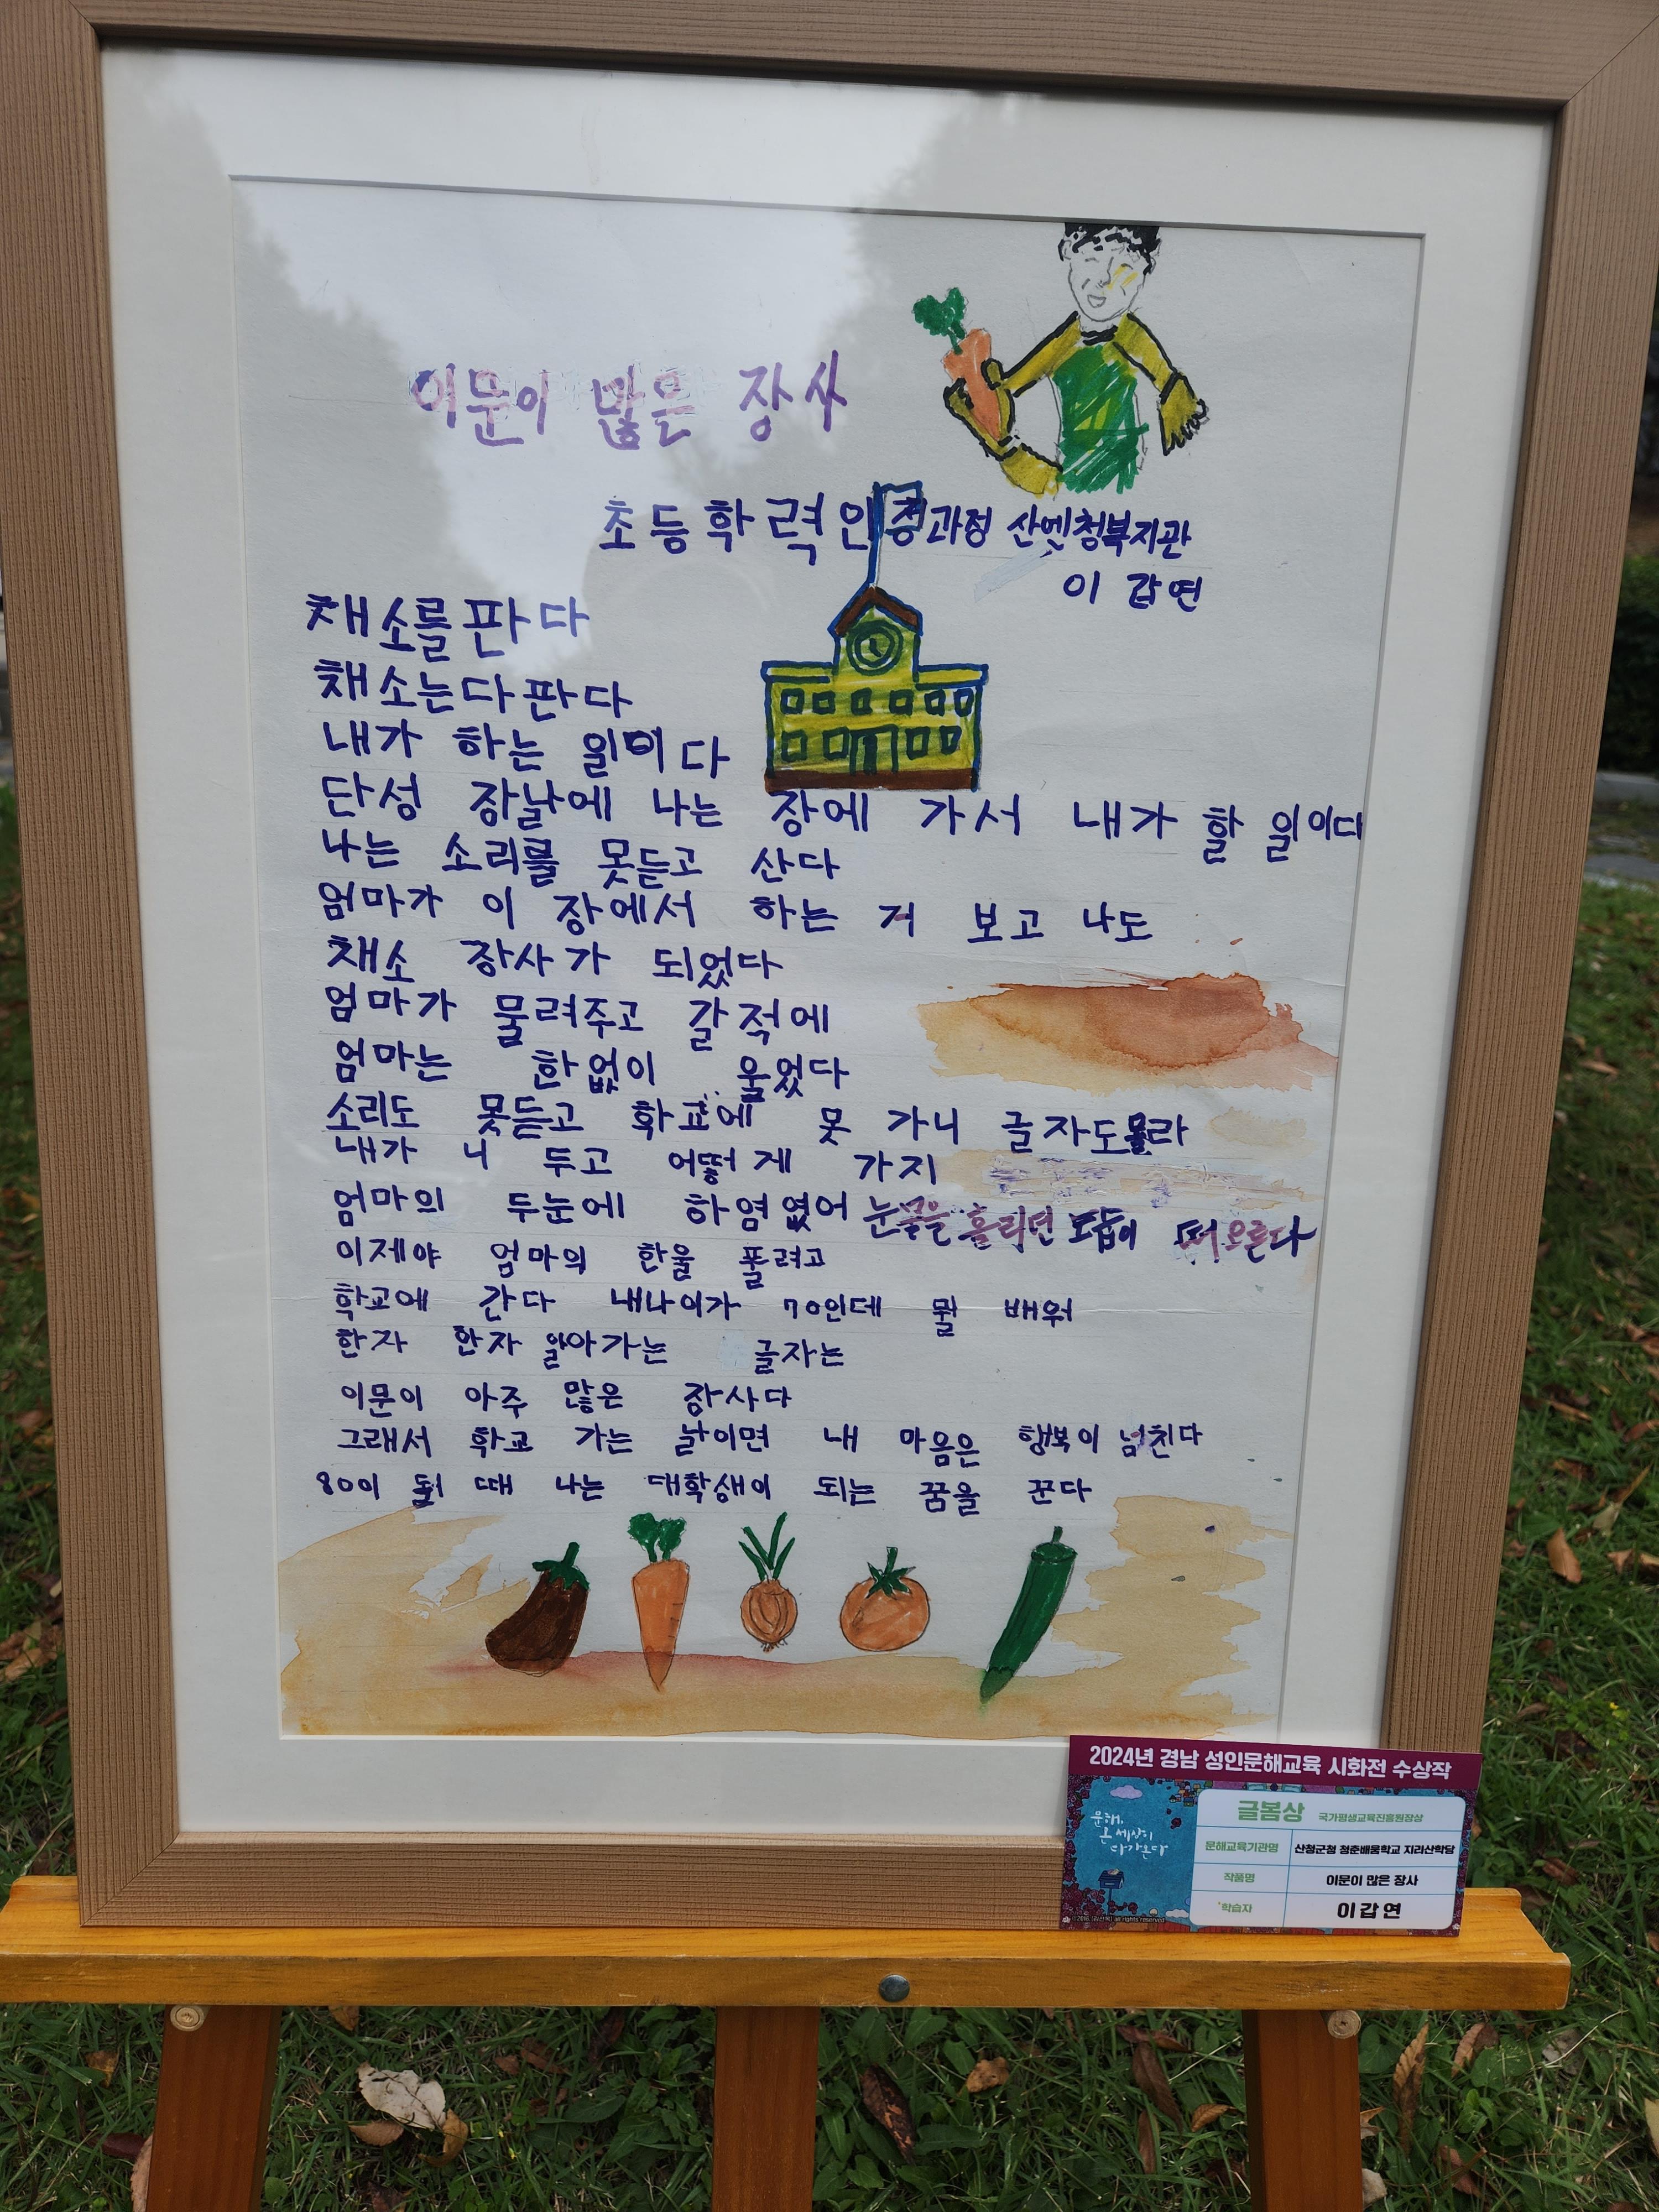 이문이 많은 장사
초등학력인정과정 산엔청복지관
이 갑연
채소를 판다
채소는다 판다
내가 하는 일이다
단성 장날에 나는 장에 가서 내가 할 일이다
나는 소리를 못듣고 산다
엄마가 이 장에서 하는 거 보고 나도
채소 장사가 되었다
엄마가 물려주고 갈 적에
엄마는 한없이 울었다
소리도 못듣고 학교에 못 가니 글자도몰라
내가 니 두고 어떻게 가지
엄마의 두눈에 하염없어 눈물을 흘리던 모습이 떠오른다
이제야 엄마의 한을 풀려고
학교에 간다 내나이가 70인데 뭘 배워
한자 한자 알아가는 글자는
이문이 아주 많은 장사다
그래서 학교 가는 날이면 내 마음은 행복이 넘친다
80이 될 때 나는 대학생이 되는 꿈을 꾼다
2024년 경남 성인문해교육 시화전 수상작
문해, 온 세상이 다가온다
글봄상 국가평생교육진흥원장상
문해교육기관명 산청군청 청춘배움학교 지리산학당
작품명 이문이 많은 장사
학습자 이갑연
all rights reserved